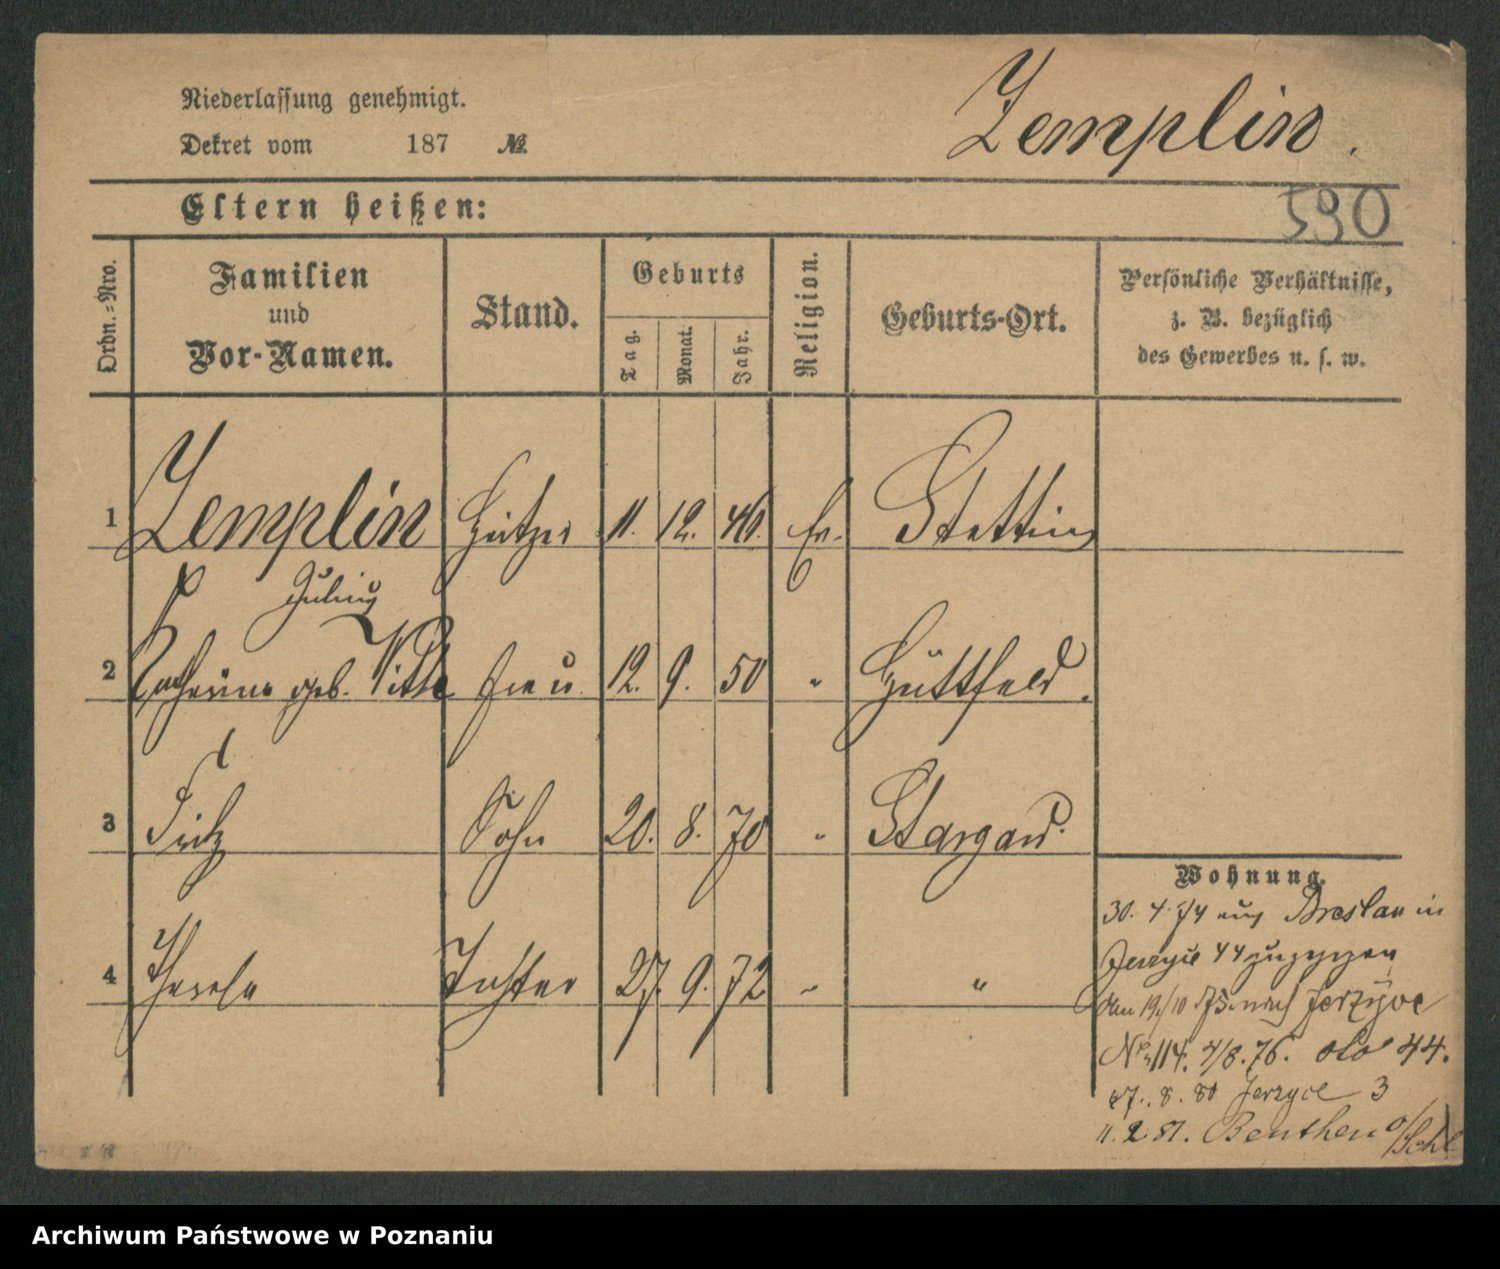 Niederlassung genehmigt.
Dekret vom 187 №
Zemplin.
Eltern heißen:
590
Ordn.-Nro.
Familien
und
Vor-Namen.
Stand.
Geburts
Tag.
Monat.
Jahr.
Religion.
Geburts-Ort.
Persönliche Verhältnisse,
z. B. bezüglich
des Gewerbes u. s. w.
1 Zemplin Heitzer 11. 12. 46. Ev. Stettin
Julius
2 Catharina geb. Vitte Frau 12. 9. 50 " Güttfeld.
3 Fritz Sohn 20. 8. 70 " Stargard.
4 Therese Tochter 27. 9. 72 " "
Wohnung.
30. 4. 74 aus Breslau in
Jerzyce 44 zugezogen
am 19/10 75 nach Jerzyce
No 114. 4/8. 76. dto 44.
27. 8. 80 Jerzyce 3
11. 2 81. Beuthen o/Schl
Archiwum Państwowe w Poznaniu